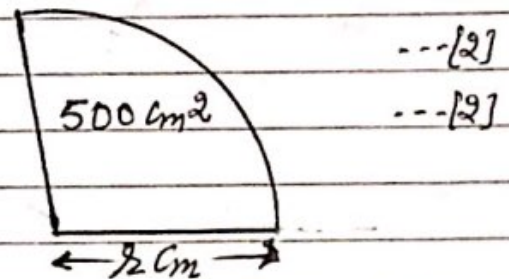 ---[2]
500 cm²
---[2]
r cm